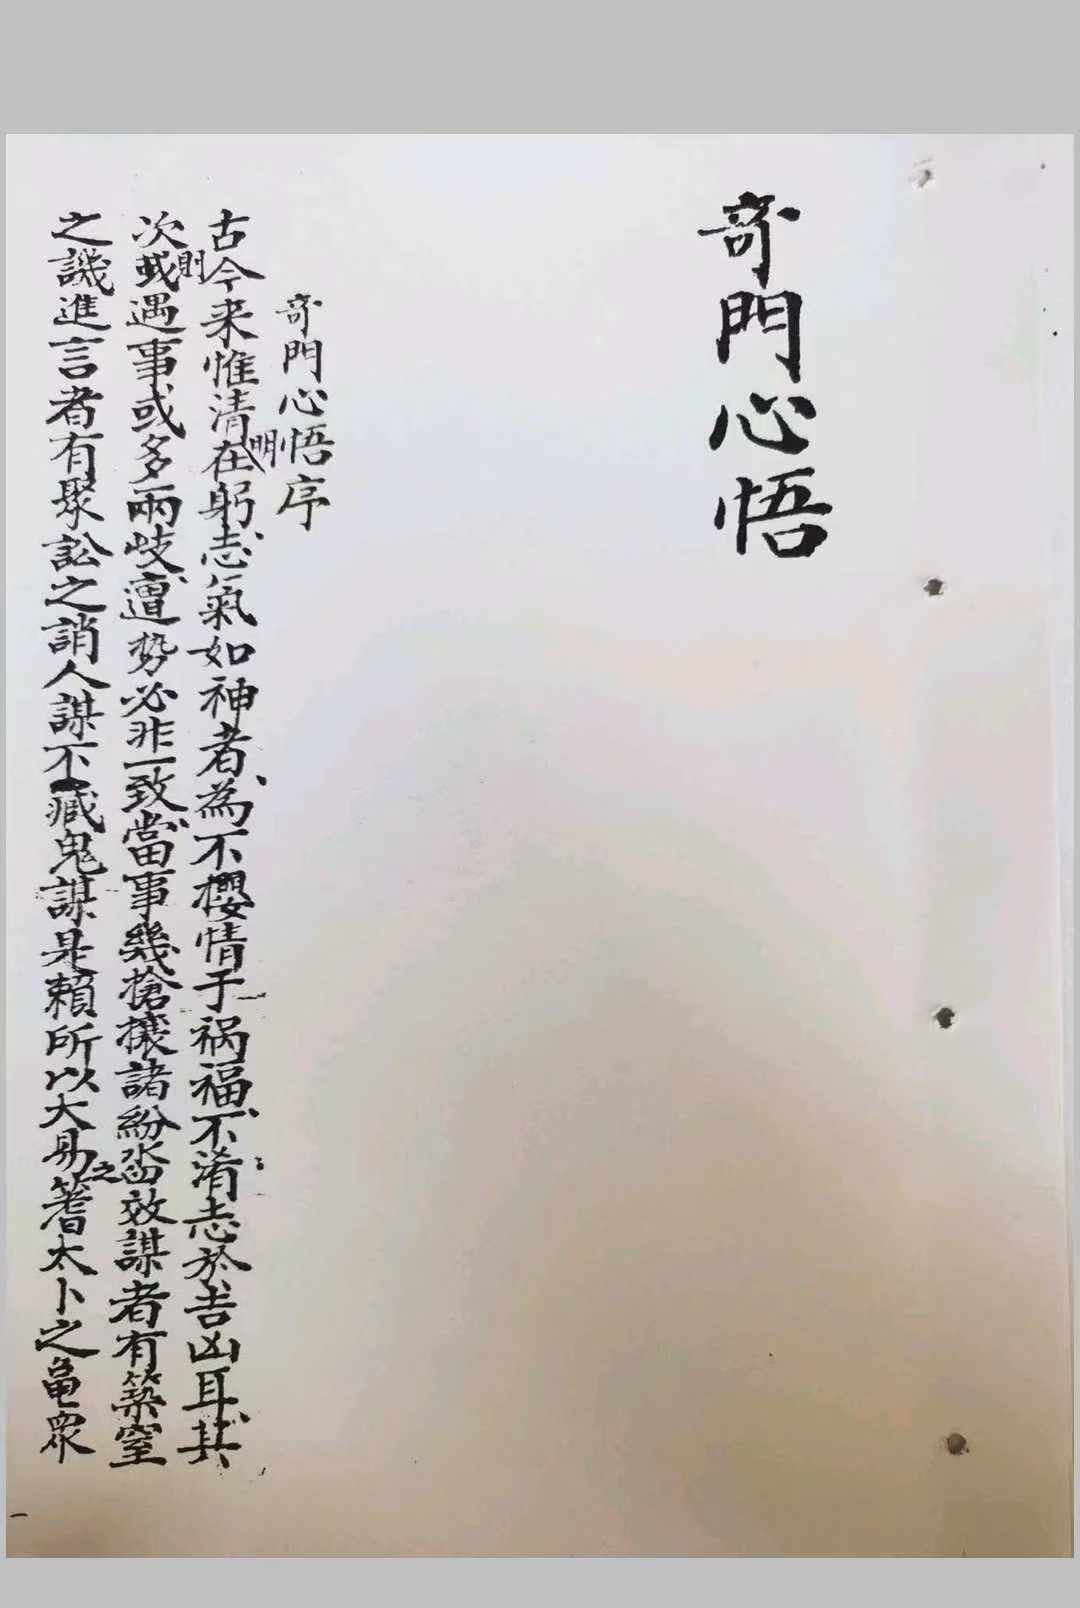 奇門心悟
奇門心悟序
古今来惟清明在躬、志氣如神者、為不櫻情于祸福、不淆志於吉凶耳、其
次則或遇事或多兩歧、遭势必非一致、當事幾搶攘諸紛沓效謀者有築室
之譏進言者有聚訟之誚人謀不臧鬼謀是賴所以大易之筮太卜之龟衆
一